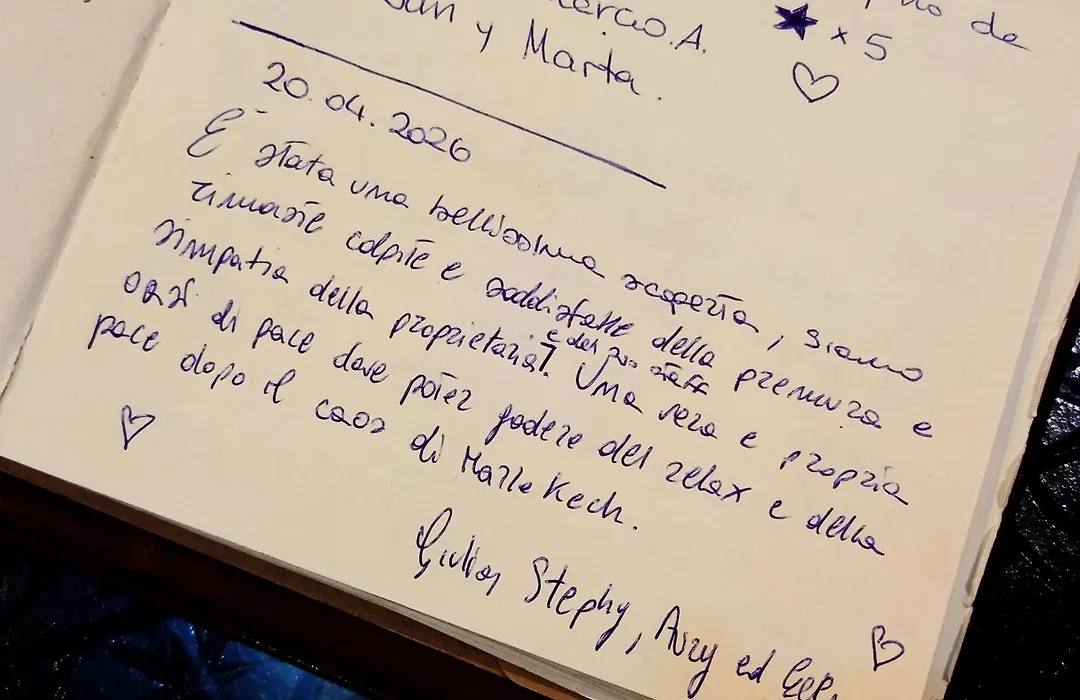 de
A.
y Marta.
★ x 5
♡
20.04.2026
É stata una bellissima scoperta, siamo
rimaste colpite e soddisfatte della premura e
simpatia della proprietaria e del suo staff. Una vera e propria
oasi di pace dove poter godere del relax e della
pace dopo il caos di Marrakech.
♡
Giulia, Stephy, Aury ed
♡